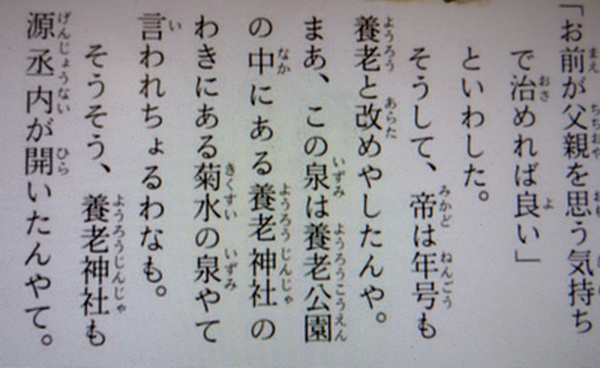 「お前が父親を思う気持ち
で治めれば良い」
といわした。
そうして、帝は年号も
養老と改めやしたんや。
まあ、この泉は養老公園
の中にある養老神社の
わきにある菊水の泉やて
言われちょるわなも。
そうそう、養老神社も
源丞内が開いたんやて。